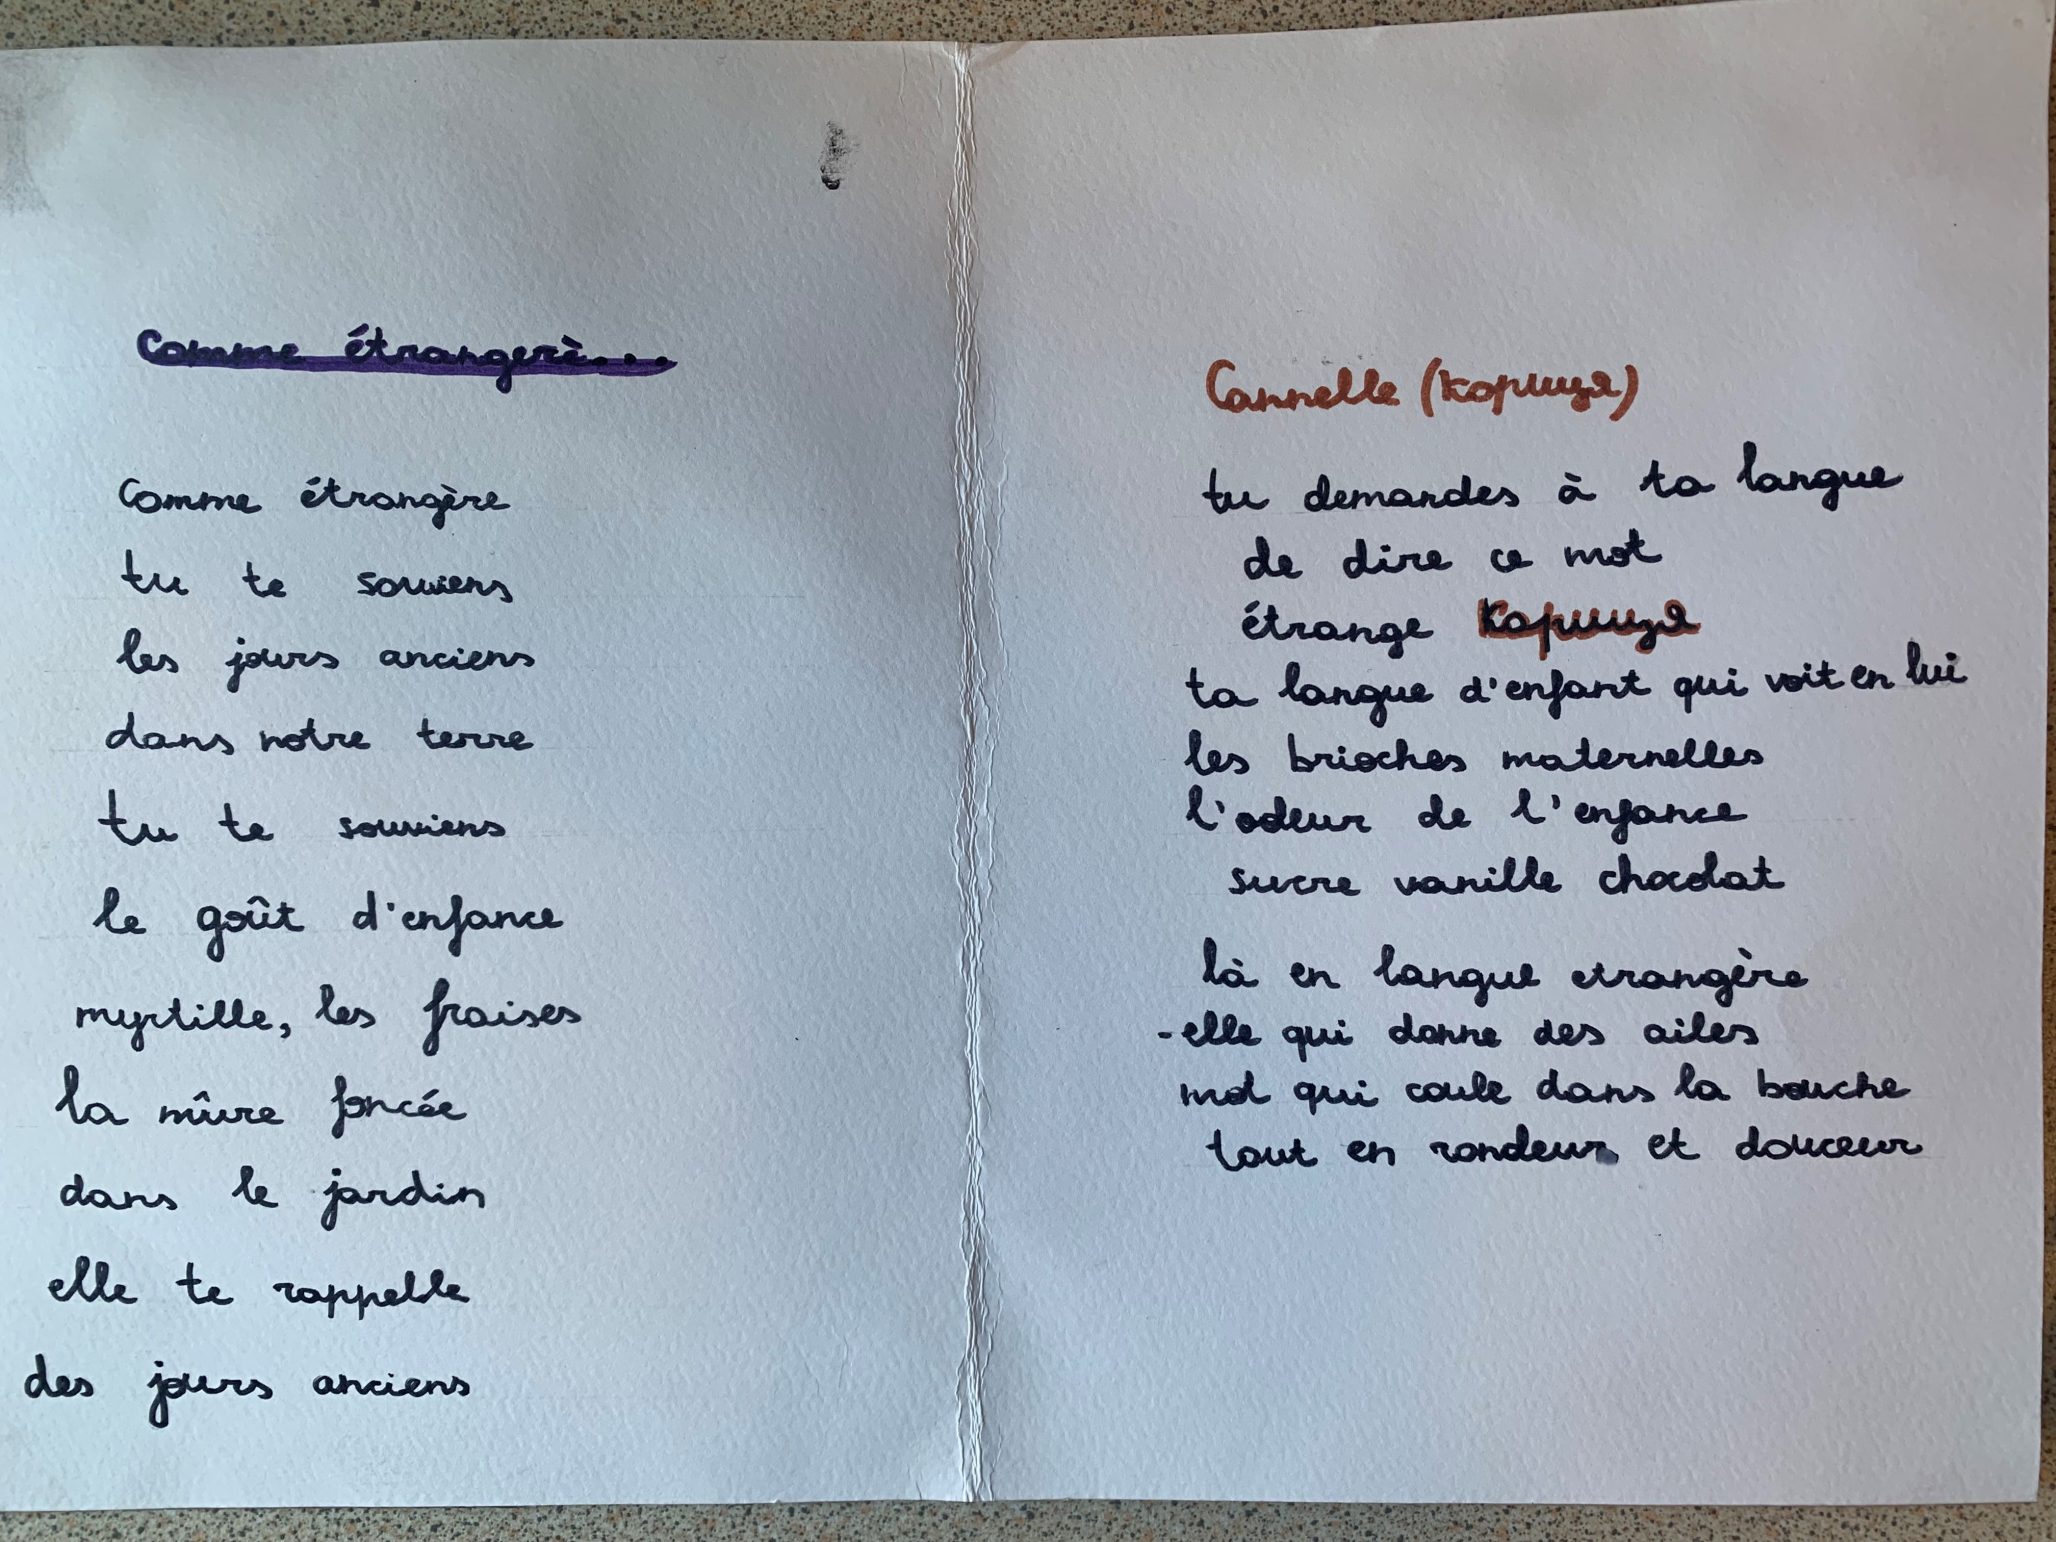 Comme étrangerè...
Comme étrangère
tu te souviens
les jours anciens
dans notre terre
tu te souviens
le goût d'enfance
myrtille, les fraises
la mûre foncée
dans le jardin
elle te rappelle
des jours anciens
Cannelle (кориця)
tu demandes à ta langue
de dire ce mot
étrange кориця
ta langue d'enfant qui voit en lui
les brioches maternelles
l'odeur de l'enfance
sucre vanille chocolat
là en langue etrangère
-elle qui donne des ailes
mot qui coule dans la bouche
tout en rondeur et douceur